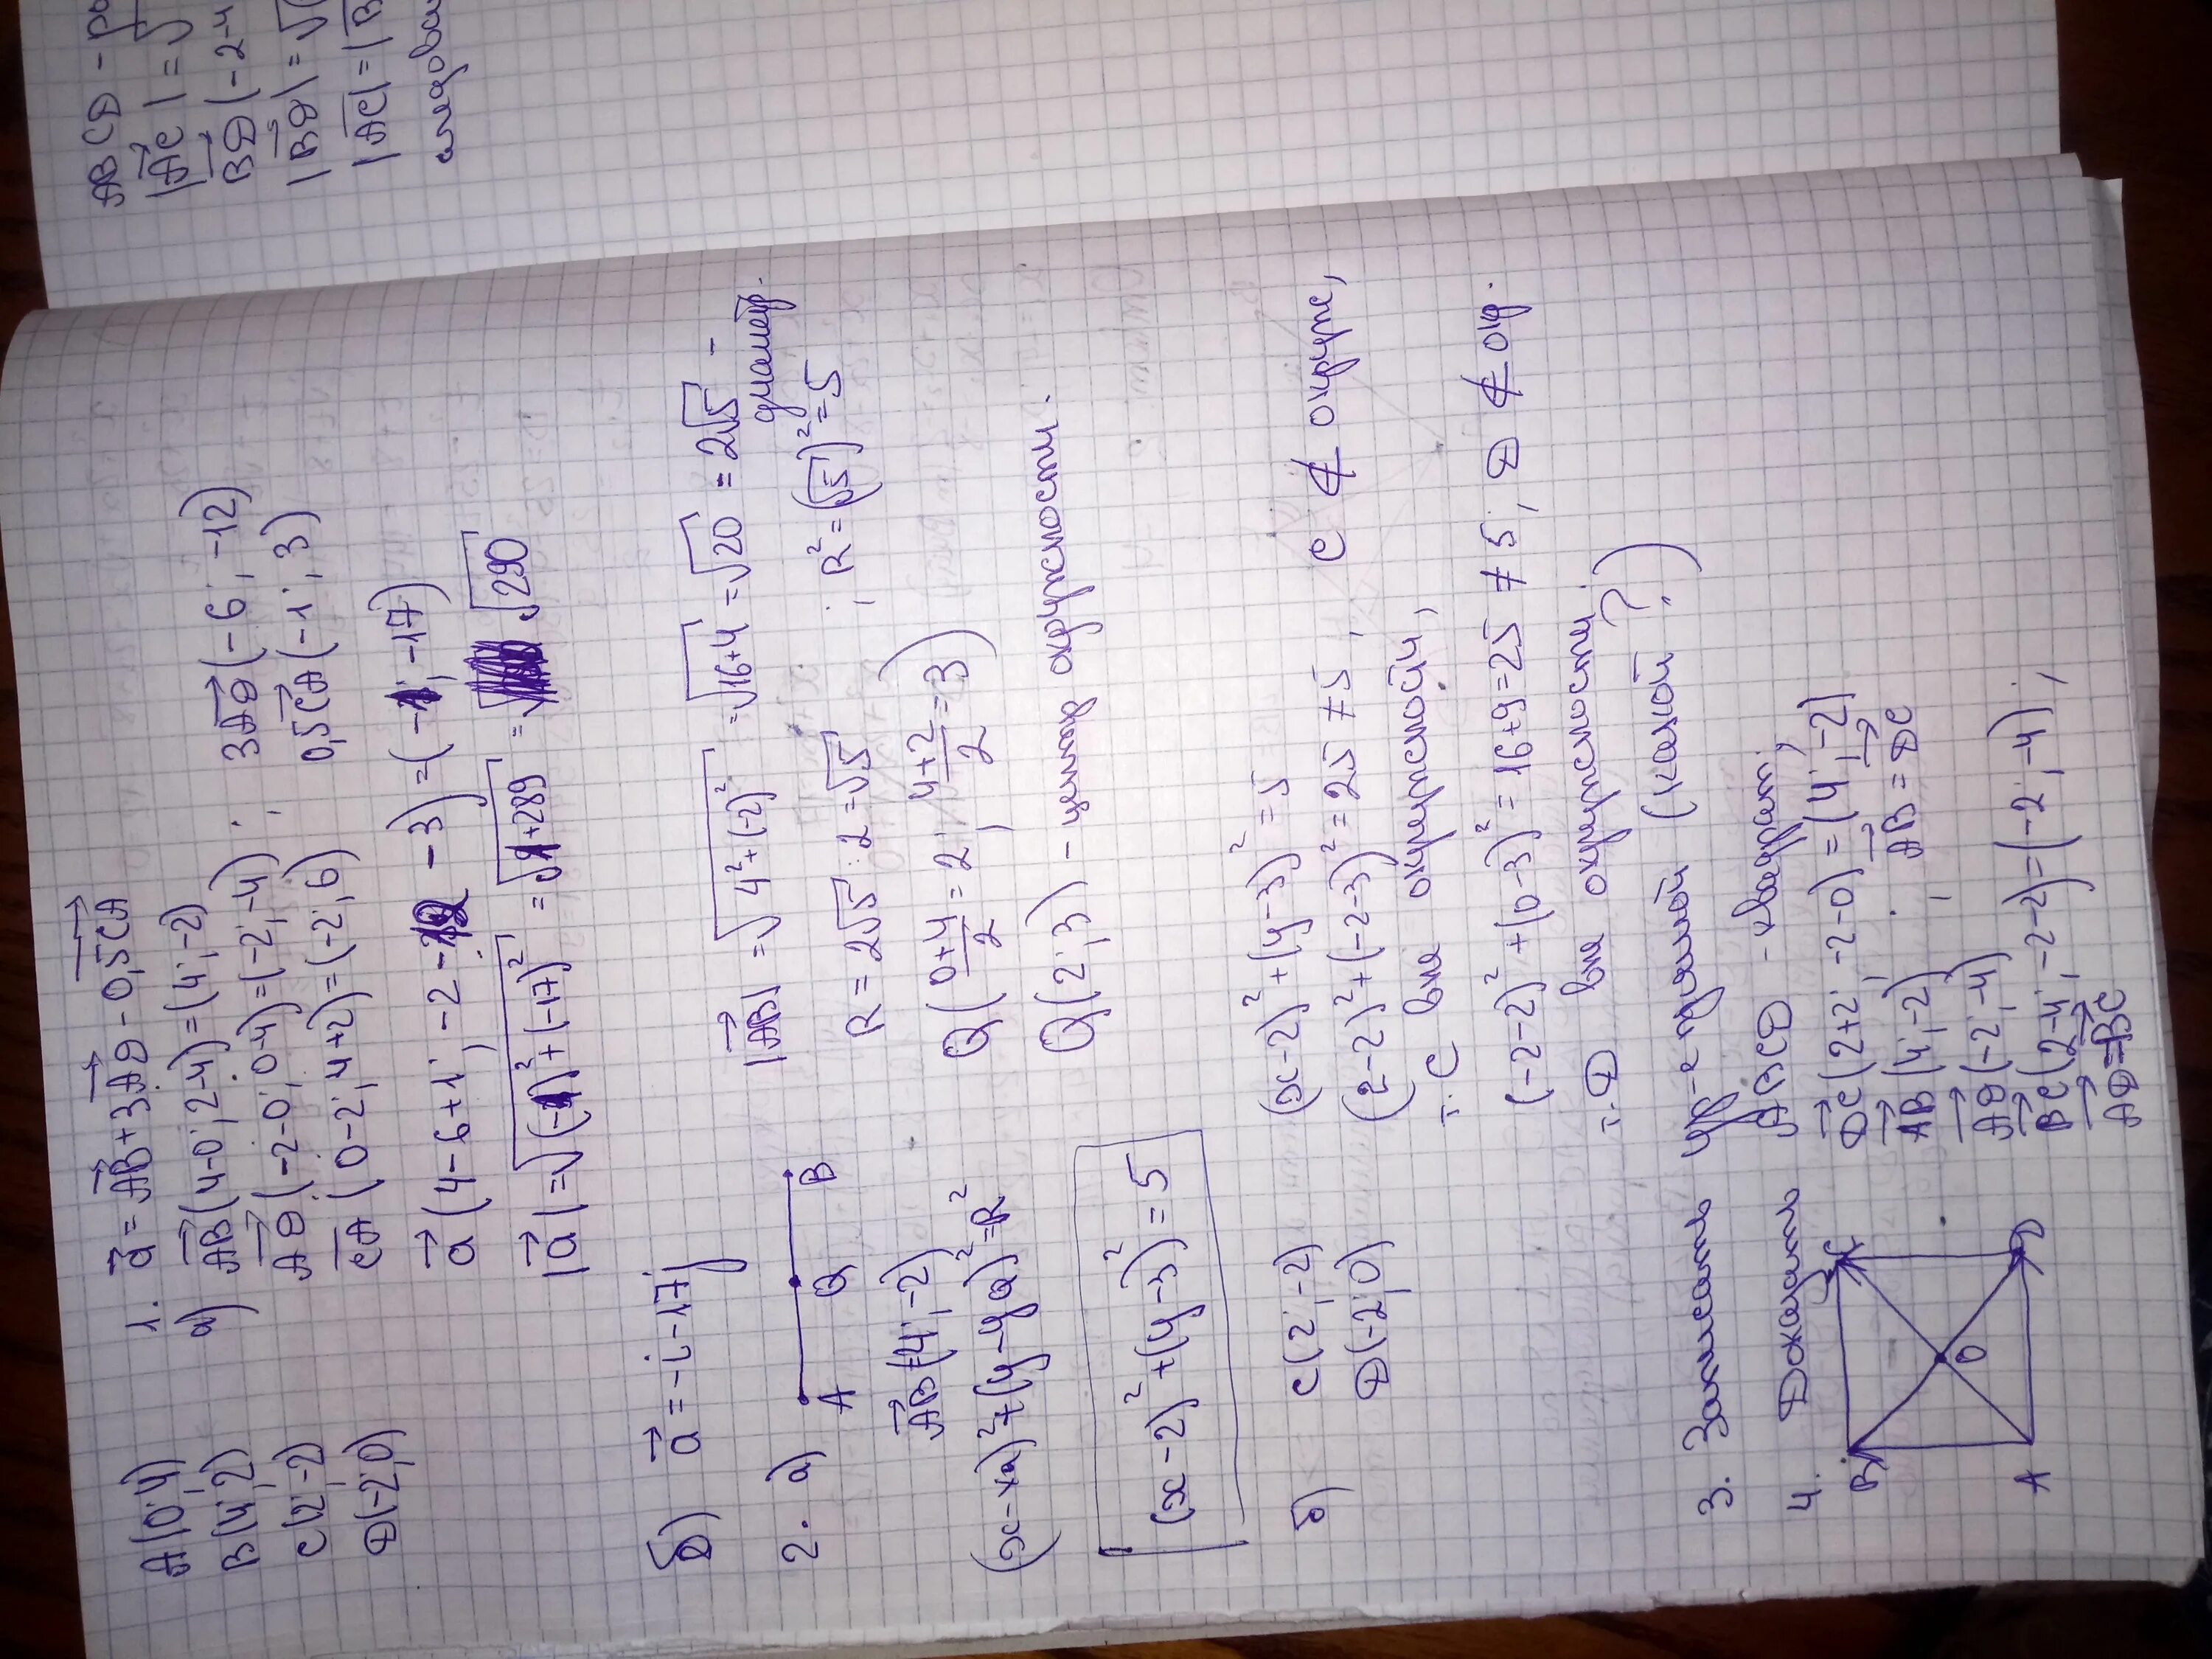 A(0;4)
B(4;2)
C(2;-2)
D(-2;0)
1. a⃗ = AB⃗ + 3AD⃗ - 0,5CA⃗
а) AB⃗ (4-0; 2-4) = (4;-2)
AD⃗ (-2-0; 0-4) = (-2;-4) ; 3AD⃗ (-6; -12)
CA⃗ (0-2; 4+2) = (-2; 6) 0,5CA⃗ (-1; 3)
a⃗ (4-6+1; -2-12-3) = (-1; -17)
|a⃗| = √((-1)²+(-17)²) = √(1+289) = √290
б) a⃗ = -i-17j
2. а) A Q B
|AB⃗| = √(4²+(-2)²) = √(16+4) = √20 = 2√5 - диаметр.
AB⃗ (4;-2) R = 2√5 : 2 = √5 ; R² = (√5)² = 5
(x-xQ)²+(y-yQ)²=R² Q((0+4)/2 = 2; (4+2)/2 = 3)
Q(2;3) - центр окружности.
(x-2)²+(y-3)²=5
б) C(2;-2)
D(-2;0)
(x-2)²+(y-3)²=5
(2-2)²+(-2-3)²=25 ≠5, C ∉ окружн,
т. C вне окружности,
(-2-2)²+(0-3)²=16+9=25 ≠ 5, D ∉ окр.
т. D вне окружности.
3. Записать ур-е прямой (какой ?)
4. Доказать ABCD - квадрат;
B C O A D
DC⃗ (2+2; -2-0) = (4;-2)
AB⃗ (4;-2) ; AB⃗ = DC⃗
AD⃗ (-2;-4)
BC⃗ (2-4; -2-2) = (-2;-4) ;
AD⃗ = BC⃗
ABCD -
|AC⃗| = √
BD⃗ (-2-4
|BD⃗| = √(
|AC⃗| = |B